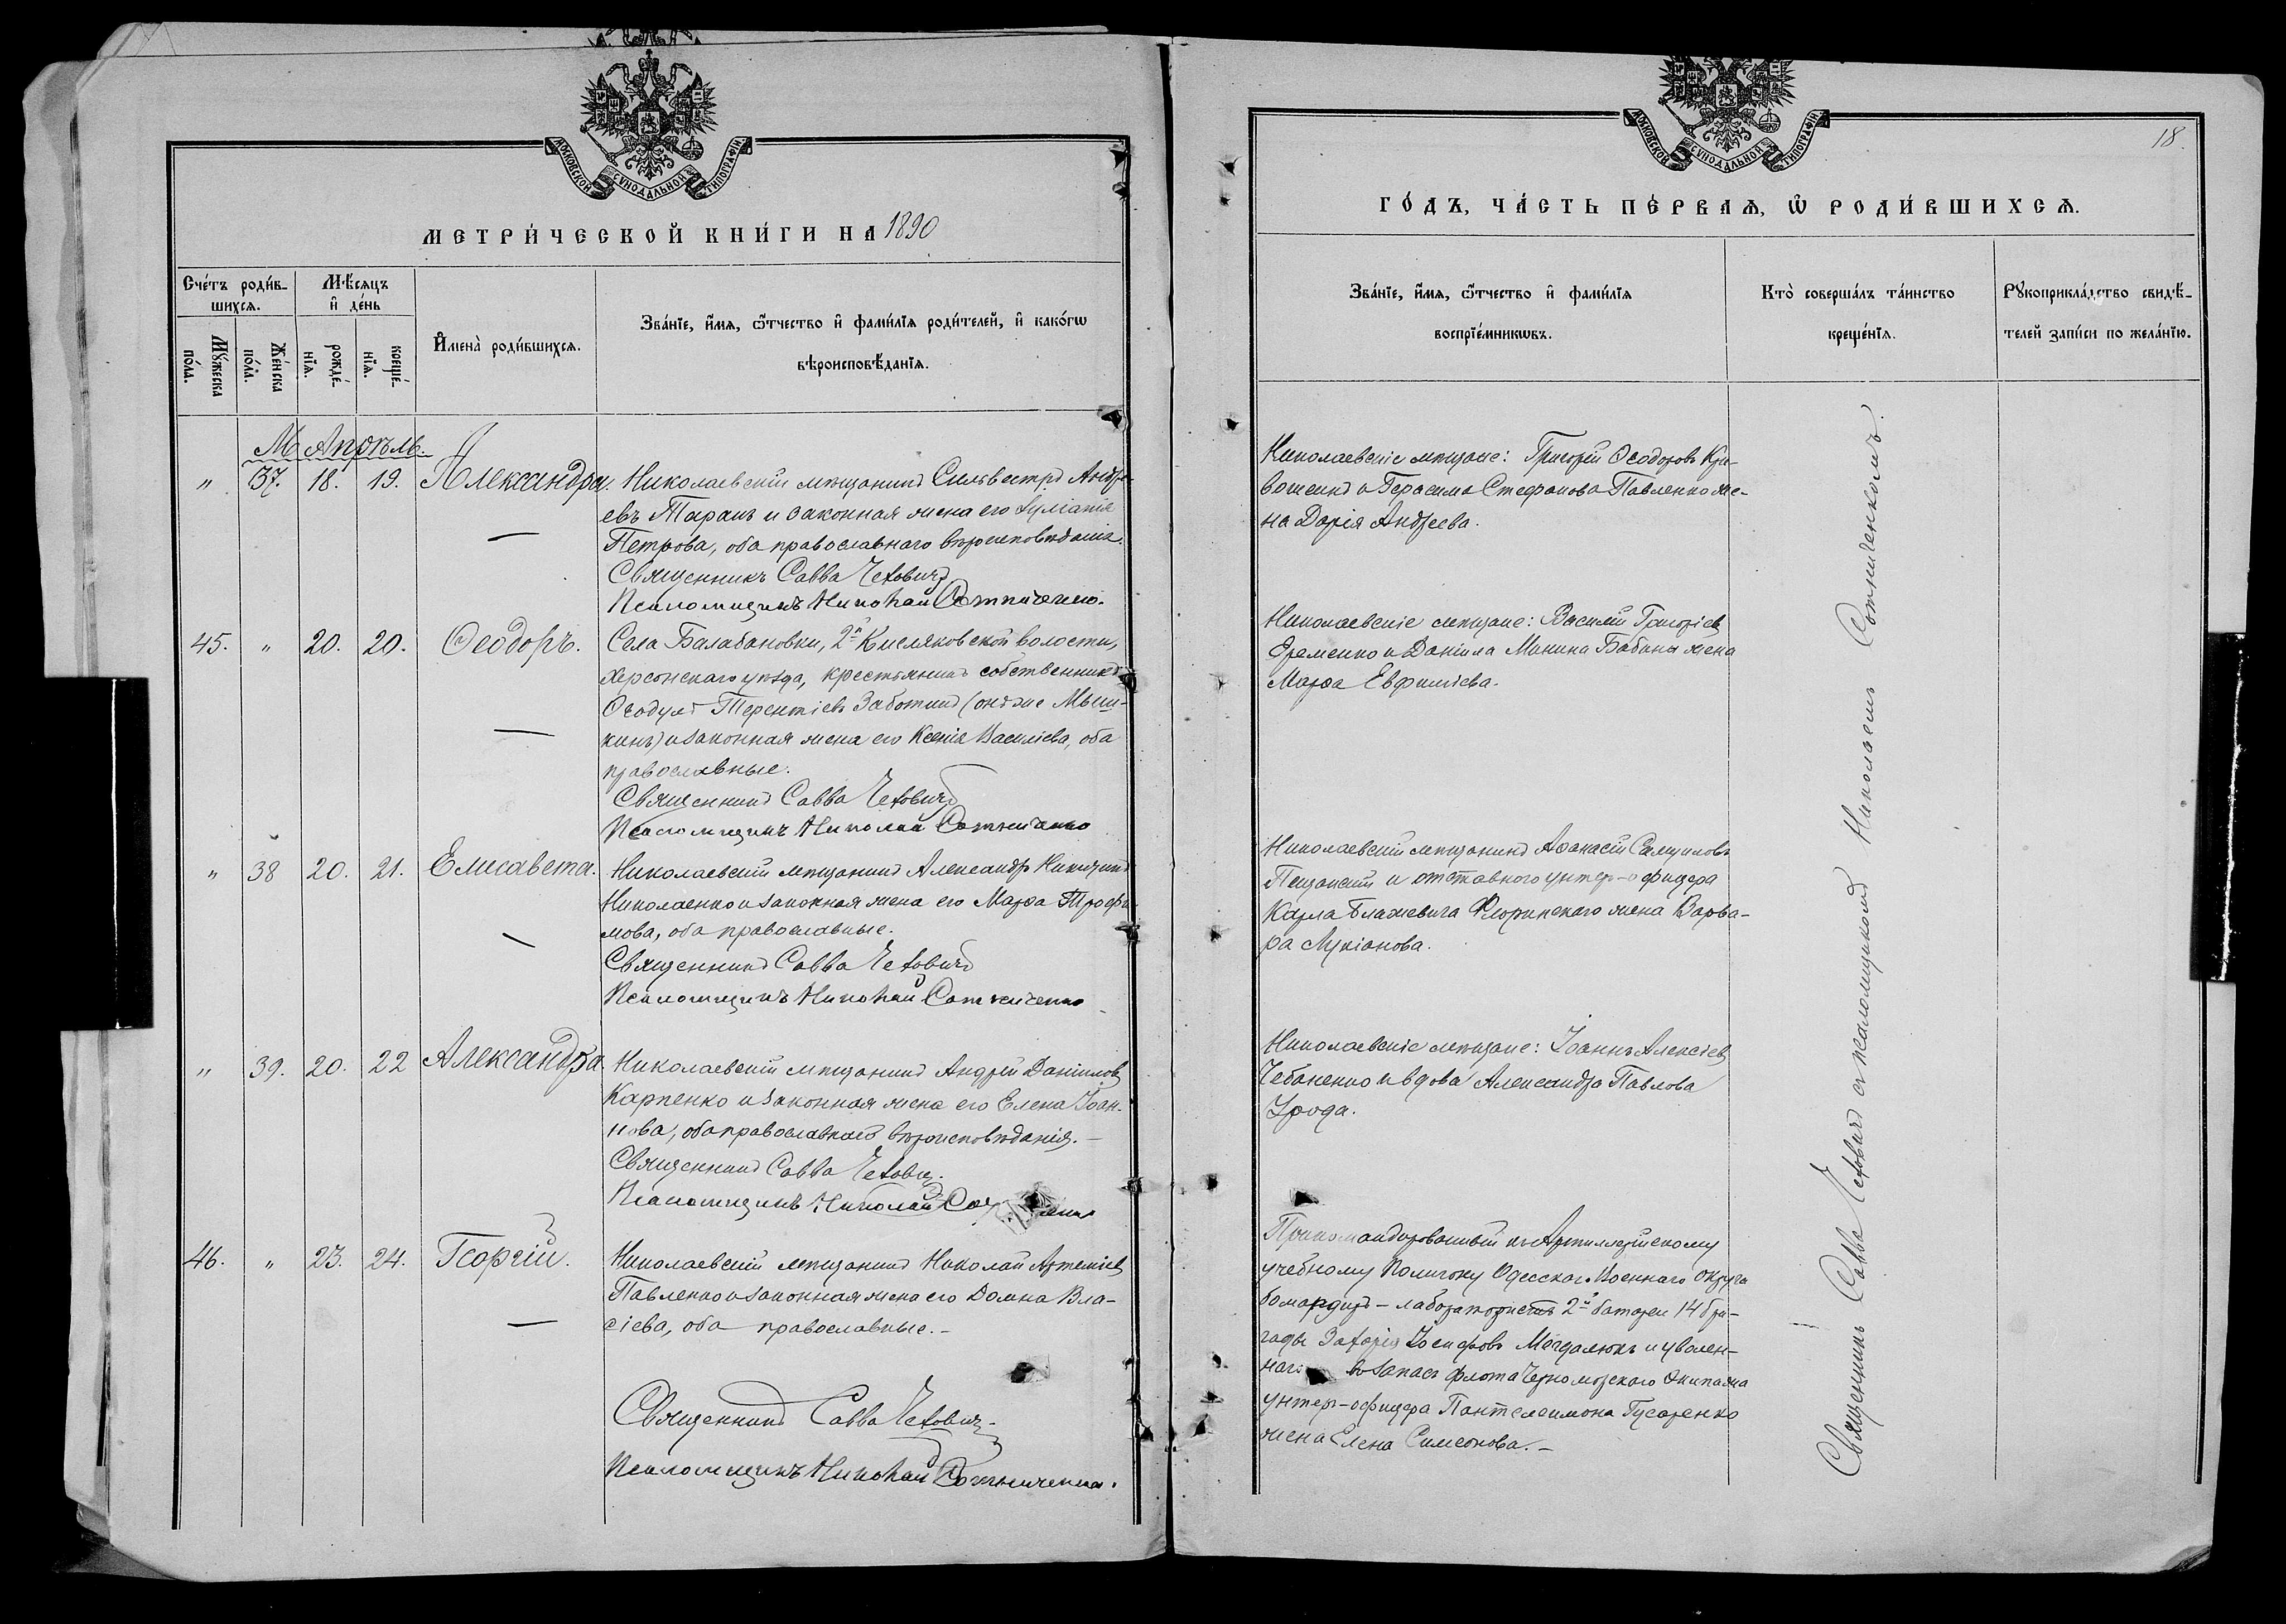 МОСКОВСКОЙ СѴНОДАЛЬНОЙ ТИПОГРАФІИ
МЕТРИ́ЧЕСКОЙ КНИ́ГИ НА 1890
Сче́тъ роди́в-
шихсѧ.
Мѣ́сѧцъ
и҆ де́нь
Мꙋ́жеска
по́ла.
Же́нска
по́ла.
рожде́-
нїѧ.
креще́-
нїѧ.
И҆мена̀ роди́вшихсѧ.
Зва́нїе, и҆́мѧ, ѻ҆́тчество и҆ фами́лїѧ роди́телей, и҆ како́гѡ
вѣроисповѣ́данїѧ.
М. Апрѣль.
" 37. 18. 19. Александра.
Николаевскій мѣщанинъ Сильвестръ Андре-
евъ Таранъ и законная жена его
Петрова, оба православнаго вѣроисповѣданія.
Священникъ Савва Чехович
Псаломщикъ Николай Сотниченко.
45. " 20. 20. Ѳеодоръ.
Села Балабановки, 2й Кисляковской волости,
Херсонскаго уѣзда, крестьянинъ собственникъ
Ѳеодулъ Терентіевъ Заботинъ (онъ же Мыш-
кинъ) и законная жена его Ксенія Василіева, оба
православные.
Священникъ Савва Чехович
Псаломщикъ Николай Сотниченко
" 38 20. 21. Елисавета.
Николаевскій мѣщанинъ Александръ
Николаенко и законная жена его Марѳа Трофи-
мова, оба православные.
Священникъ Савва Чехович
Псаломщикъ Николай Сотниченко
" 39. 20. 22 Александра
Николаевскій мѣщанинъ Андрей Даніиловъ
Карпенко и законная жена его Елена Іоан-
нова, оба православнаго вѣроисповѣданія.-
Священникъ Савва Чехович.
Псаломщикъ Николай
46. " 23. 24. Георгій.
Николаевскій мѣщанинъ Николай Артеміевъ
Павленко и законная жена его Домна Вла-
сіева, оба православные.-
Священникъ Савва Чехович.
Псаломщикъ Николай Сотниченко.
18.
МОСКОВСКОЙ СѴНОДАЛЬНОЙ ТИПОГРАФІИ
ГО́ДЪ, ЧА́СТЬ ПЕ́РВАѦ, Ѡ҆ РОДИ́ВШИХСѦ.
Зва́нїе, и҆́мѧ, ѻ҆́тчество и҆ фами́лїѧ
воспрїе́мникѡвъ.
Кто̀ соверша́лъ та́инство
креще́нїѧ.
Рꙋкоприкла́дство свидѣ́-
телей за́писи по жела́нїю.
Николаевскіе мѣщане: Григорій Ѳеодоровъ Кри-
вошеинъ и Герасима Стефанова Павленко же-
на Дарія Андреева.
Николаевскіе мѣщане: Василій Григоріевъ
Еременко и Даніила Минина Бабины жена
Марѳа Евфиміева.
Николаевскій мѣщанинъ Аѳанасій Самуиловъ
Пещанскій и отставного унтер-офицера
Карла Блажевича Флоринскаго жена Варва-
ра Лукіанова.
Николаевскіе мѣщане: Іоаннъ Алексіевъ
Чебаненко и вдова Александра Павлова
Урода.
Прикомандированный къ Артиллерійскому
учебному Полигону Одесскаго Военнаго Округа
бомардиръ - лаборатористъ 2й батареи 14 бри-
гады Захарія Іосифовъ Магдалюкъ и уволен-
наго въ запасъ флота Черноморскаго Экипажа
унтер-офицера Пантелеимона Гусаренко
жена Елена Симеонова.-
Священникъ Савва Чеховичъ съ псаломщикомъ Николаемъ Сотниченкомъ.